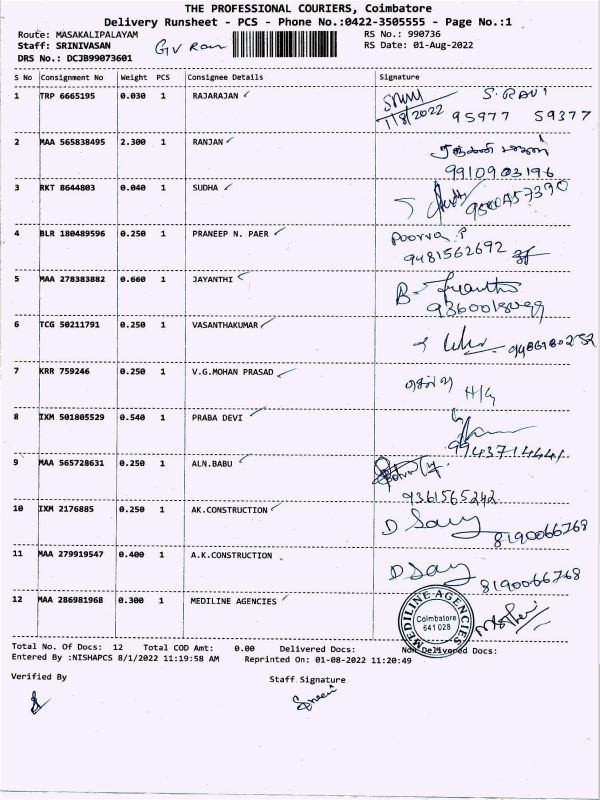 THE PROFESSIONAL COURIERS, Coimbatore
Delivery Runsheet - PCS - Phone No.:0422-3505555 - Page No.:1
Route: MASAKALIPALAYAM RS No.: 990736
Staff: SRINIVASAN RS Date: 01-Aug-2022
DRS No.: DCJB99073601
S No Consignment No Weight PCS Consignee Details Signature
1 TRP 6665195 0.030 1 RAJARAJAN S. RAVI
1/8/2022 95977 59377
2 MAA 565838495 2.300 1 RANJAN
9910903196
3 RKT 8644803 0.040 1 SUDHA
4 BLR 180489596 0.250 1 PRANEEP N. PAER Poorva P
9481562692
5 MAA 278383882 0.660 1 JAYANTHI B-
6 TCG 50211791 0.250 1 VASANTHAKUMAR
7 KRR 759246 0.250 1 V.G.MOHAN PRASAD
H/W
8 IXM 501805529 0.540 1 PRABA DEVI
9943714441
9 MAA 565728631 0.250 1 ALN.BABU
9361565242
10 IXM 2176885 0.250 1 AK.CONSTRUCTION D
8190066768
11 MAA 279919547 0.400 1 A.K.CONSTRUCTION D
8190066768
12 MAA 286981968 0.300 1 MEDILINE AGENCIES MEDILINE AGENCIES
Coimbatore
641 028
Total No. Of Docs: 12 Total COD Amt: 0.00 Delivered Docs: Non Delivered Docs:
Entered By :NISHAPCS 8/1/2022 11:19:58 AM Reprinted On: 01-08-2022 11:20:49
Verified By Staff Signature